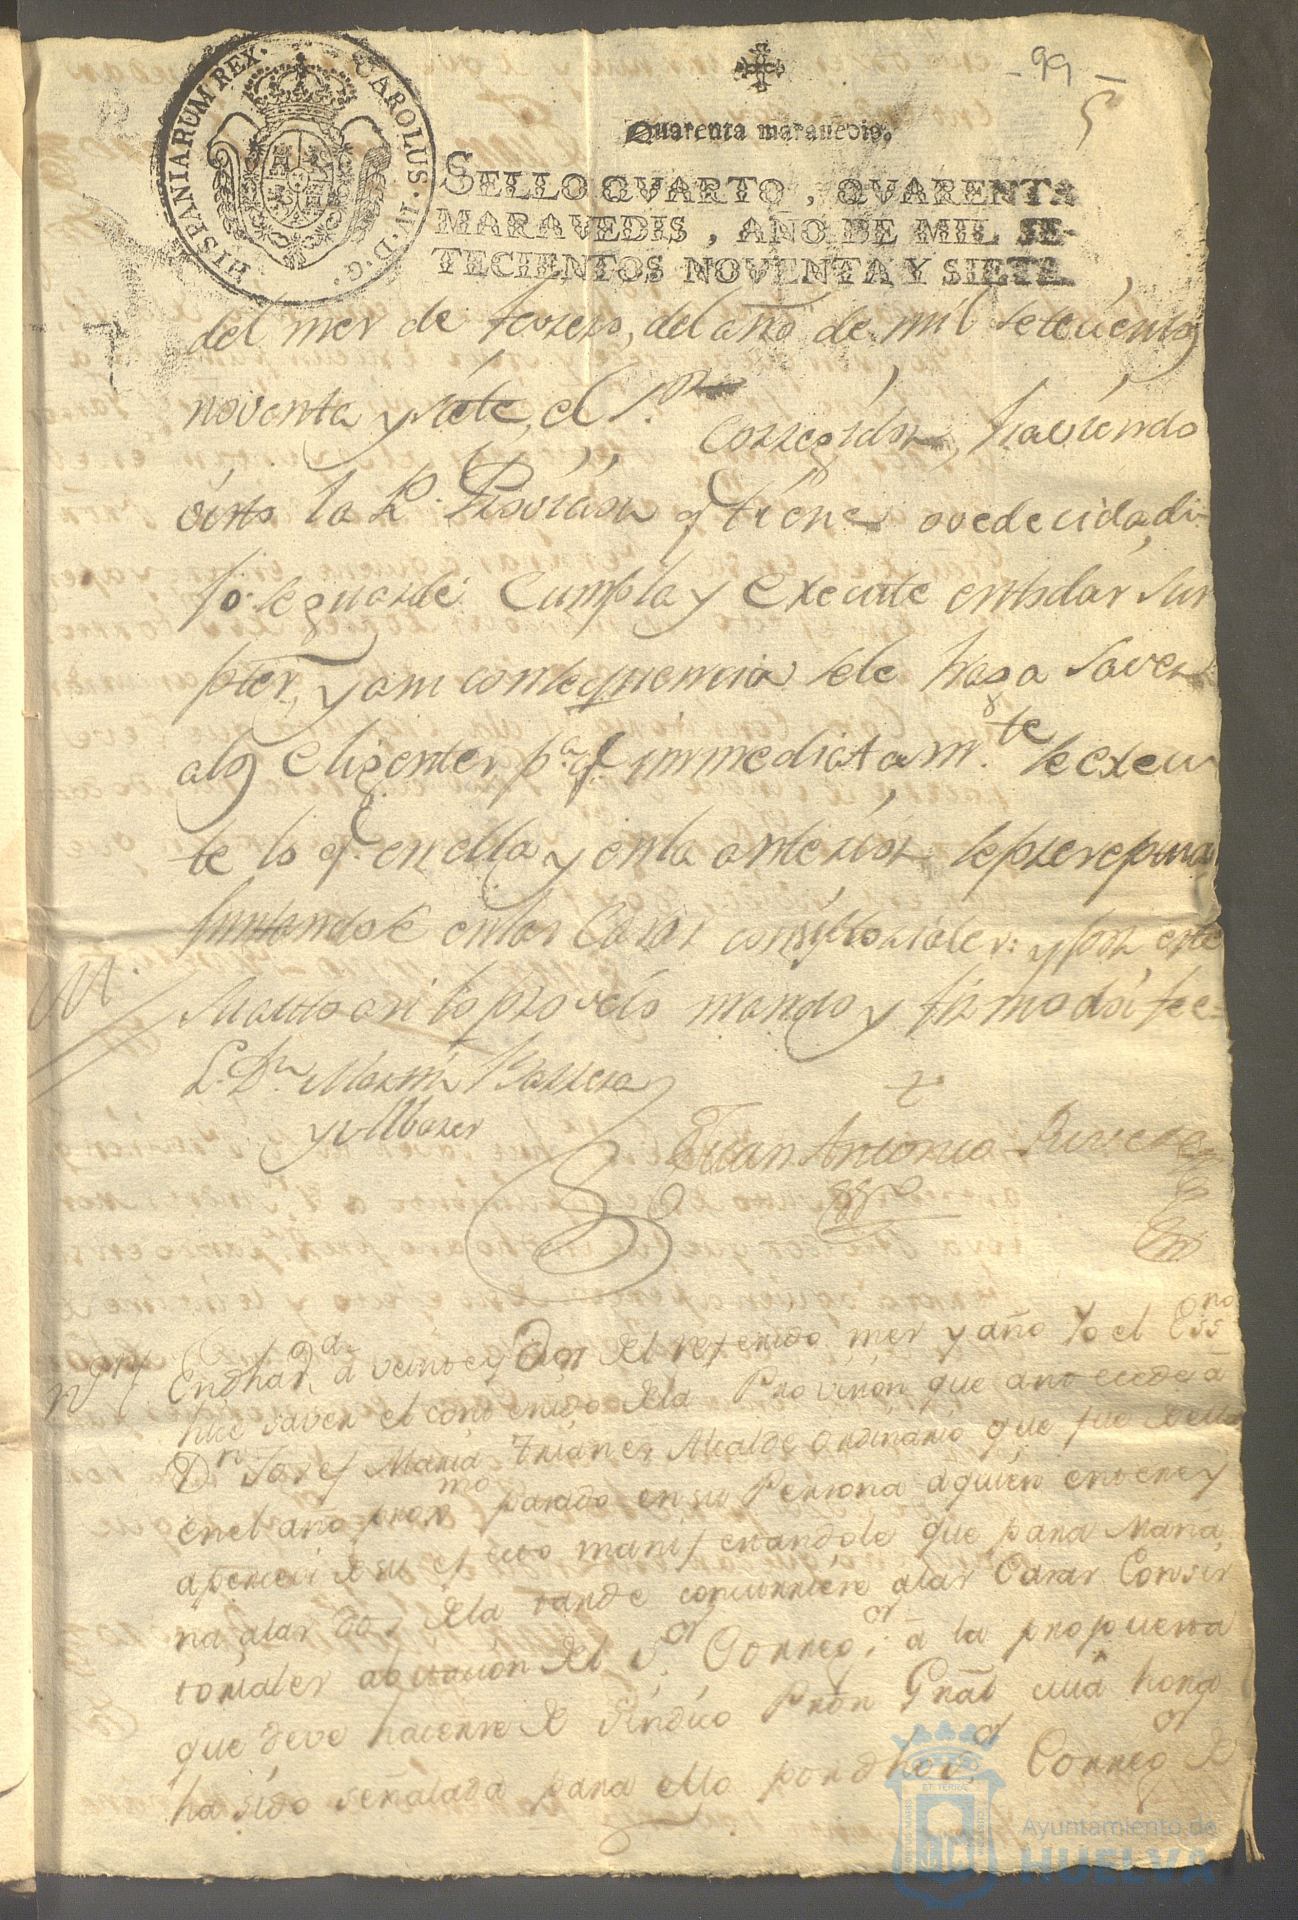 - 99 -
5
HISPANIARUM REX. CAROLUS. IV. D. G.
Quarenta maravedis.
SELLO QVARTO, QVARENTA
MARAVEDIS, AÑO DE MIL SE-
TECIENTOS NOVENTA Y SIETE.
del mes de febrero, del año de mil setecientos
noventa y siete, el S.or Corregidor, haviendo
visto la R. Provision q tiene ovedecida, di-
jo: se guarde Cumpla y execute en todas sus
ptes, y asu consequencia se le haga saver
alos eligentes pa. q. immediatam.te se execu
te lo q. en ella y en la anterior se
juntandose en las Casas consistoriales: y por este
su auto asi lo proveio mando y firmo doi fee-
L. Dn Martin Barrera
y Albarez
Juan Antonio
En dha d a veinte y Dos del referido mes y año Yo el Essno
hice saver el contenido dela Provision que antecede a
Dn Josef Maria Trianes Alcalde ordinario que fue
en el año proxmo pasado en su Persona a quien entere y
aperciví de su efecto manifestandole que para Maña
na alas Dos dela tarde concurriere alas Casas Consis
toriales abitacion del Sor Correg.or a la propuesta
que deve hacerse de Sindico Prōn Gral cuia hora
ha sido señalada para ello por dho Sor Correg.or de
Ayuntamiento de
HUELVA